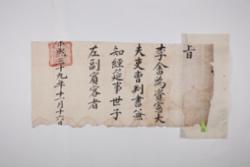 旨
李畬為資憲大
夫吏曹判書兼
知經筵事世子
左副賓客者
康熙三十九年十一月十六日